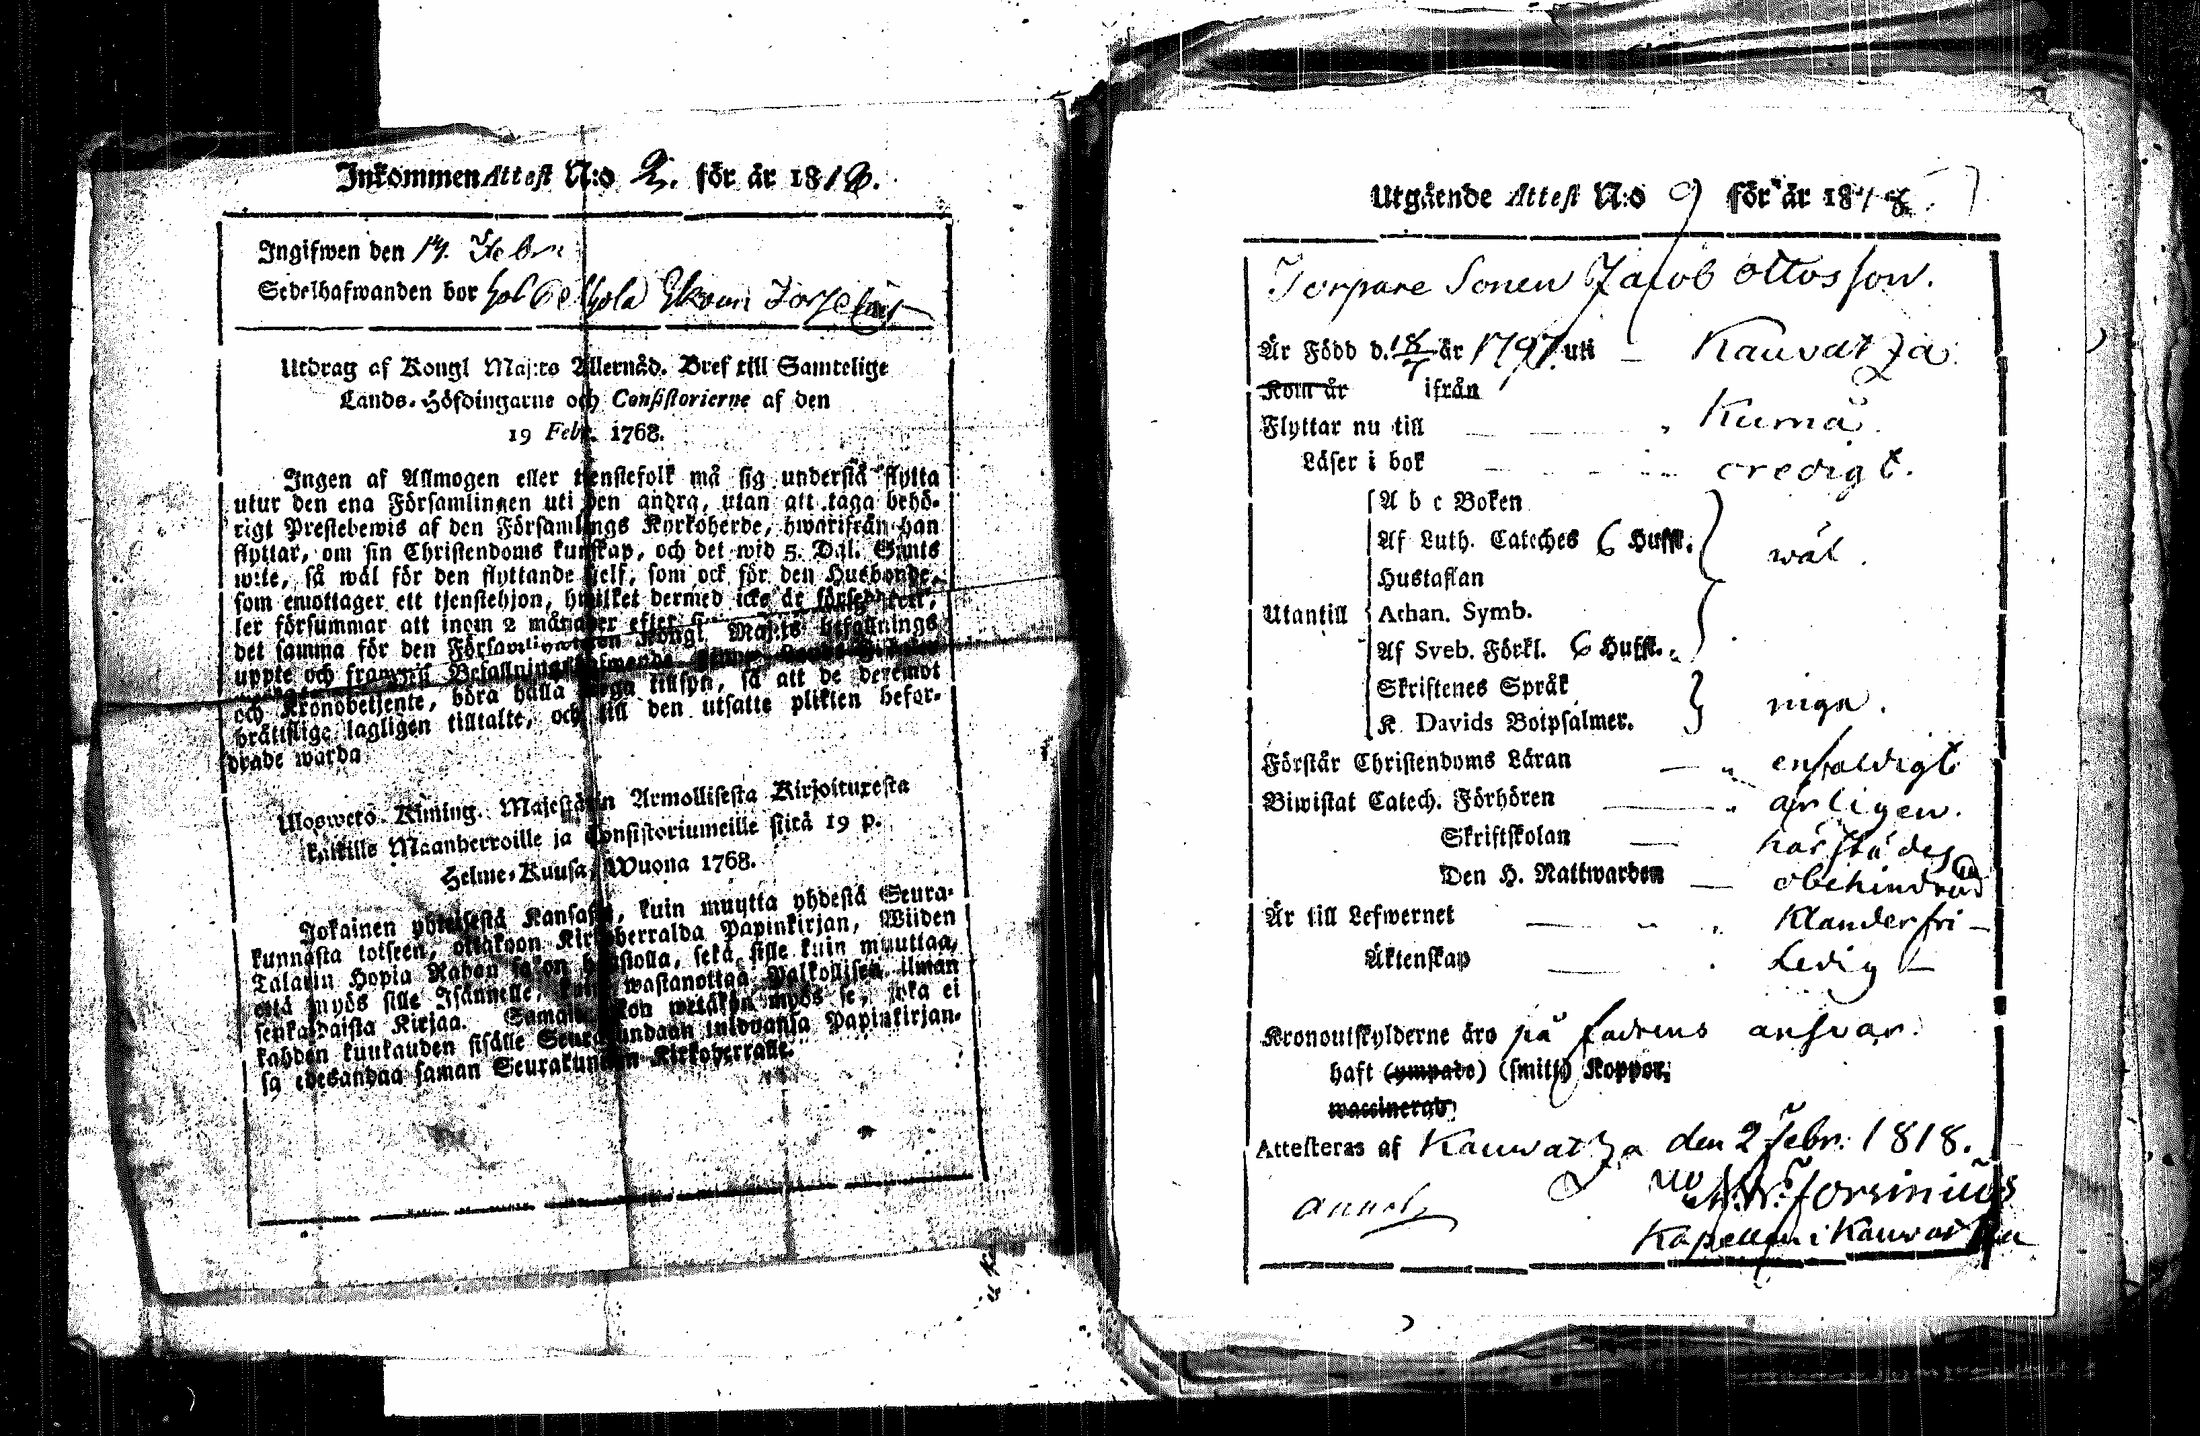 Inkommen Attest N:o 2. för år 1818.
Ingifwen den 14. Febr:
Sedelhafwanden bor
Utdrag af Kongl Maj:ts Allernåd. Bref till Samtelige
Lands-Höfdingarne och Consistorierne af den
19 Febr. 1768.
Ingen af Allmogen eller tjenstefolk må sig understå flytta
utur den ena Församlingen uti den andra, utan att taga behö-
rigt Prestebewis af den Församlings Kyrkoherde, hwarifrån han
flyttar, om sin Christendoms kunskap, och det wid 5. Dal. S:mts
wite, så wäl för den flyttande sjelf, som ock för den Husbonde,
som emottager ett tjenstehjon, hwilket dermed icke är försedt
ler försummar att inom 2 månader efter
det samma för den Församlingen Kongl. Maj:ts befallnings
uppte och framgå Befallningshafwande
och Kronobetjente, böra hålla noga tillsyn, så att de deremot
brätslige lagligen tilltalte, och till den utsatte plikten befor-
drade warda
Uloswetö Kuning. Majestätin Armollisesta Kirjoituxesta
kaikille Maanherroille ja Consistoriumeille siitä 19 p.
Helme-Kuusa, Wuona 1768.
Jokainen yhteisestä Kansasta, kuin muutta yhdestä Seura-
kunnasta toiseen, ottakoon Kirkoherralda Papinkirjan, Wiiden
Talarin Hopia Rahan sakon haastolla, sekä sille kuin muuttaa,
että myös sille Isännelle, kuin wastanottaa Palkollisen ilman
senkaldaista Kirjaa. Samaan sakkon wetäkön myös se, joka ei
kahden kuukauden sisälle Seurakundaan tulduansa Papinkirjan-
sa edesandaa saman Seurakunnan Kirkoherralle.
Utgående Attest N:o 9 för år 1818
Torpare Sonen Jacob Ottosson.
Är Född d. 18/7 år 1797. uti - Kauvatza
Kom år ifrån
Flyttar nu till Kumå.
Läser i bok credigt.
A b c Boken
Af Luth. Cateches 6 Hufst. wäl.
Hustaflan
Utantill Athan. Symb.
Af Sveb. Förkl. 6 Hufst.
Skriftenes Språk
K. Davids Botpsalmer. niga.
Förstår Christendoms Läran enfaldigt
Biwistat Catech. Förhören årligen.
Skriftskolan härstädes
Den H. Nattwarden obehindrad
Är till Lefwernet Klanderfri -
Äktenskap Ledig -
Kronoutskylderne äro på fadrens answar.
haft (ympade) (smitt) Koppor.
waccinerad
Attesteras af Kauwatza den 2 Febr: 1818.
Forsinius
Kapellan i Kauwatza